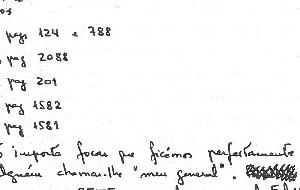 os
pag 124 e 788
pag 2088
pag 201
pag 1582
pag 1581
importa focar que ficámos perfeitamente
alguém chamar-lhe "meu general".